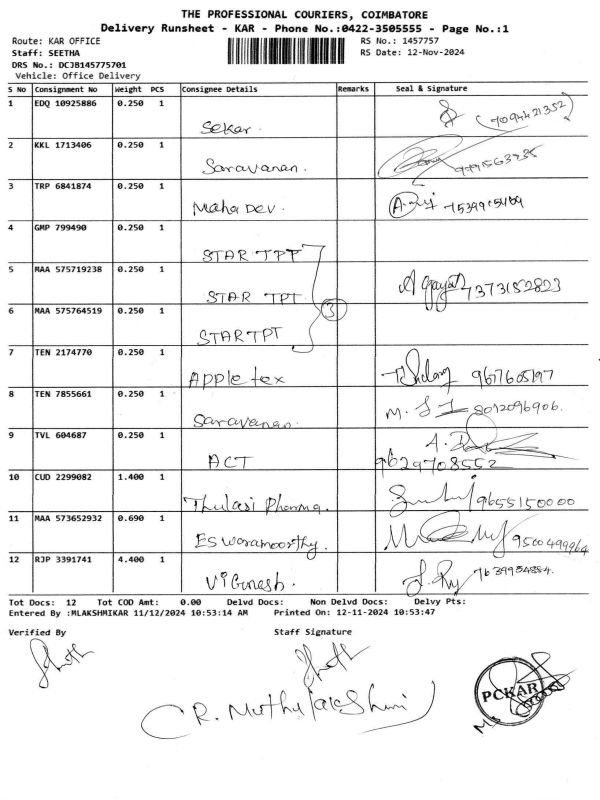 THE PROFESSIONAL COURIERS, COIMBATORE
Delivery Runsheet - KAR - Phone No.:0422-3505555 - Page No.:1
Route: KAR OFFICE RS No.: 1457757
Staff: SEETHA RS Date: 12-Nov-2024
DRS No.: DCJB145775701
Vehicle: Office Delivery
S No Consignment No Weight PCS Consignee Details Remarks Seal & Signature
1 EDQ 10925886 0.250 1 Sekar. (7094421352)
2 KKL 1713406 0.250 1 Saravanan.
3 TRP 6841874 0.250 1 Maha Dev.
4 GMP 799490 0.250 1 STAR TPT
5 MAA 575719238 0.250 1 STAR TPT 7373152823
6 MAA 575764519 0.250 1 STAR TPT 3
7 TEN 2174770 0.250 1 Apple tex 9677605197
8 TEN 7855661 0.250 1 Saravanan. 8012096906.
9 TVL 604687 0.250 1 ACT 9629708552
10 CUD 2299082 1.400 1 Thulasi Pharma. 9655150000
11 MAA 573652932 0.690 1 Eswaramoorthy. 9500499964
12 RJP 3391741 4.400 1 Vignesh.
Tot Docs: 12 Tot COD Amt: 0.00 Delvd Docs: Non Delvd Docs: Delvy Pts:
Entered By :MLAKSHMIKAR 11/12/2024 10:53:14 AM Printed On: 12-11-2024 10:53:47
Verified By Staff Signature
PCKAR
(R. Muthulakshmi)